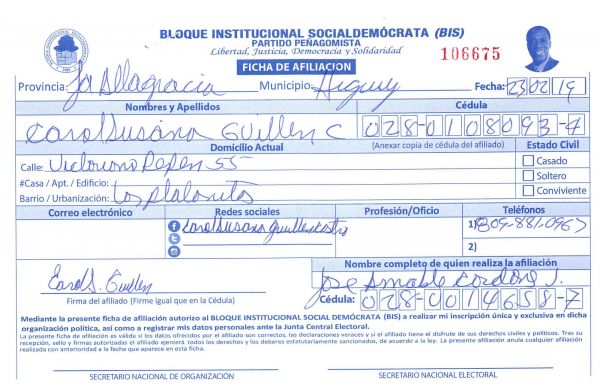 BLOQUE INSTITUCIONAL SOCIALDEMÓCRATA (BIS)
PARTIDO PEÑAGOMISTA
Libertad, Justicia, Democracia y Solidaridad
106675
FICHA DE AFILIACION
Provincia: La Altagracia Municipio: Higuey Fecha: 23/02/19
Nombres y Apellidos Cédula
Carol Susana Guillen C 028-0108093-7
Domicilio Actual (Anexar copia de cédula del afiliado) Estado Civil
Calle: Victoriano Pepen 55 Casado
#Casa / Apt. / Edificio: Soltero
Barrio / Urbanización: Los Platanitos Conviviente
Correo electrónico Redes sociales Profesión/Oficio Teléfonos
Carol Susana Guillen Castro 1) 809-881-0967
2)
Nombre completo de quien realiza la afiliación
Carol S. Guillen Jose Amable Cordones J.
Firma del afiliado (Firme igual que en la Cédula) Cédula: 028-0014658-7
Mediante la presente ficha de afiliación autorizo al BLOQUE INSTITUCIONAL SOCIAL DEMÓCRATA (BIS) a realizar mi inscripción única y exclusiva en dicha
organización política, así como a registrar mis datos personales ante la Junta Central Electoral.
La presente ficha de afiliación es válida si los datos ofrecidos por el afiliado son correctos, las declaraciones veraces y si el afiliado tiene el disfrute de sus derechos civiles y políticos. Tras su
recepción, sello y firmas autorizadas el afiliado ejercerá todos los derechos y los deberes estatutariamente sancionados, de acuerdo a la ley. La presente afiliación anula cualquier afiliación
realizada con anterioridad a la fecha que aparece en esta ficha.
SECRETARIO NACIONAL DE ORGANIZACIÓN SECRETARIO NACIONAL ELECTORAL